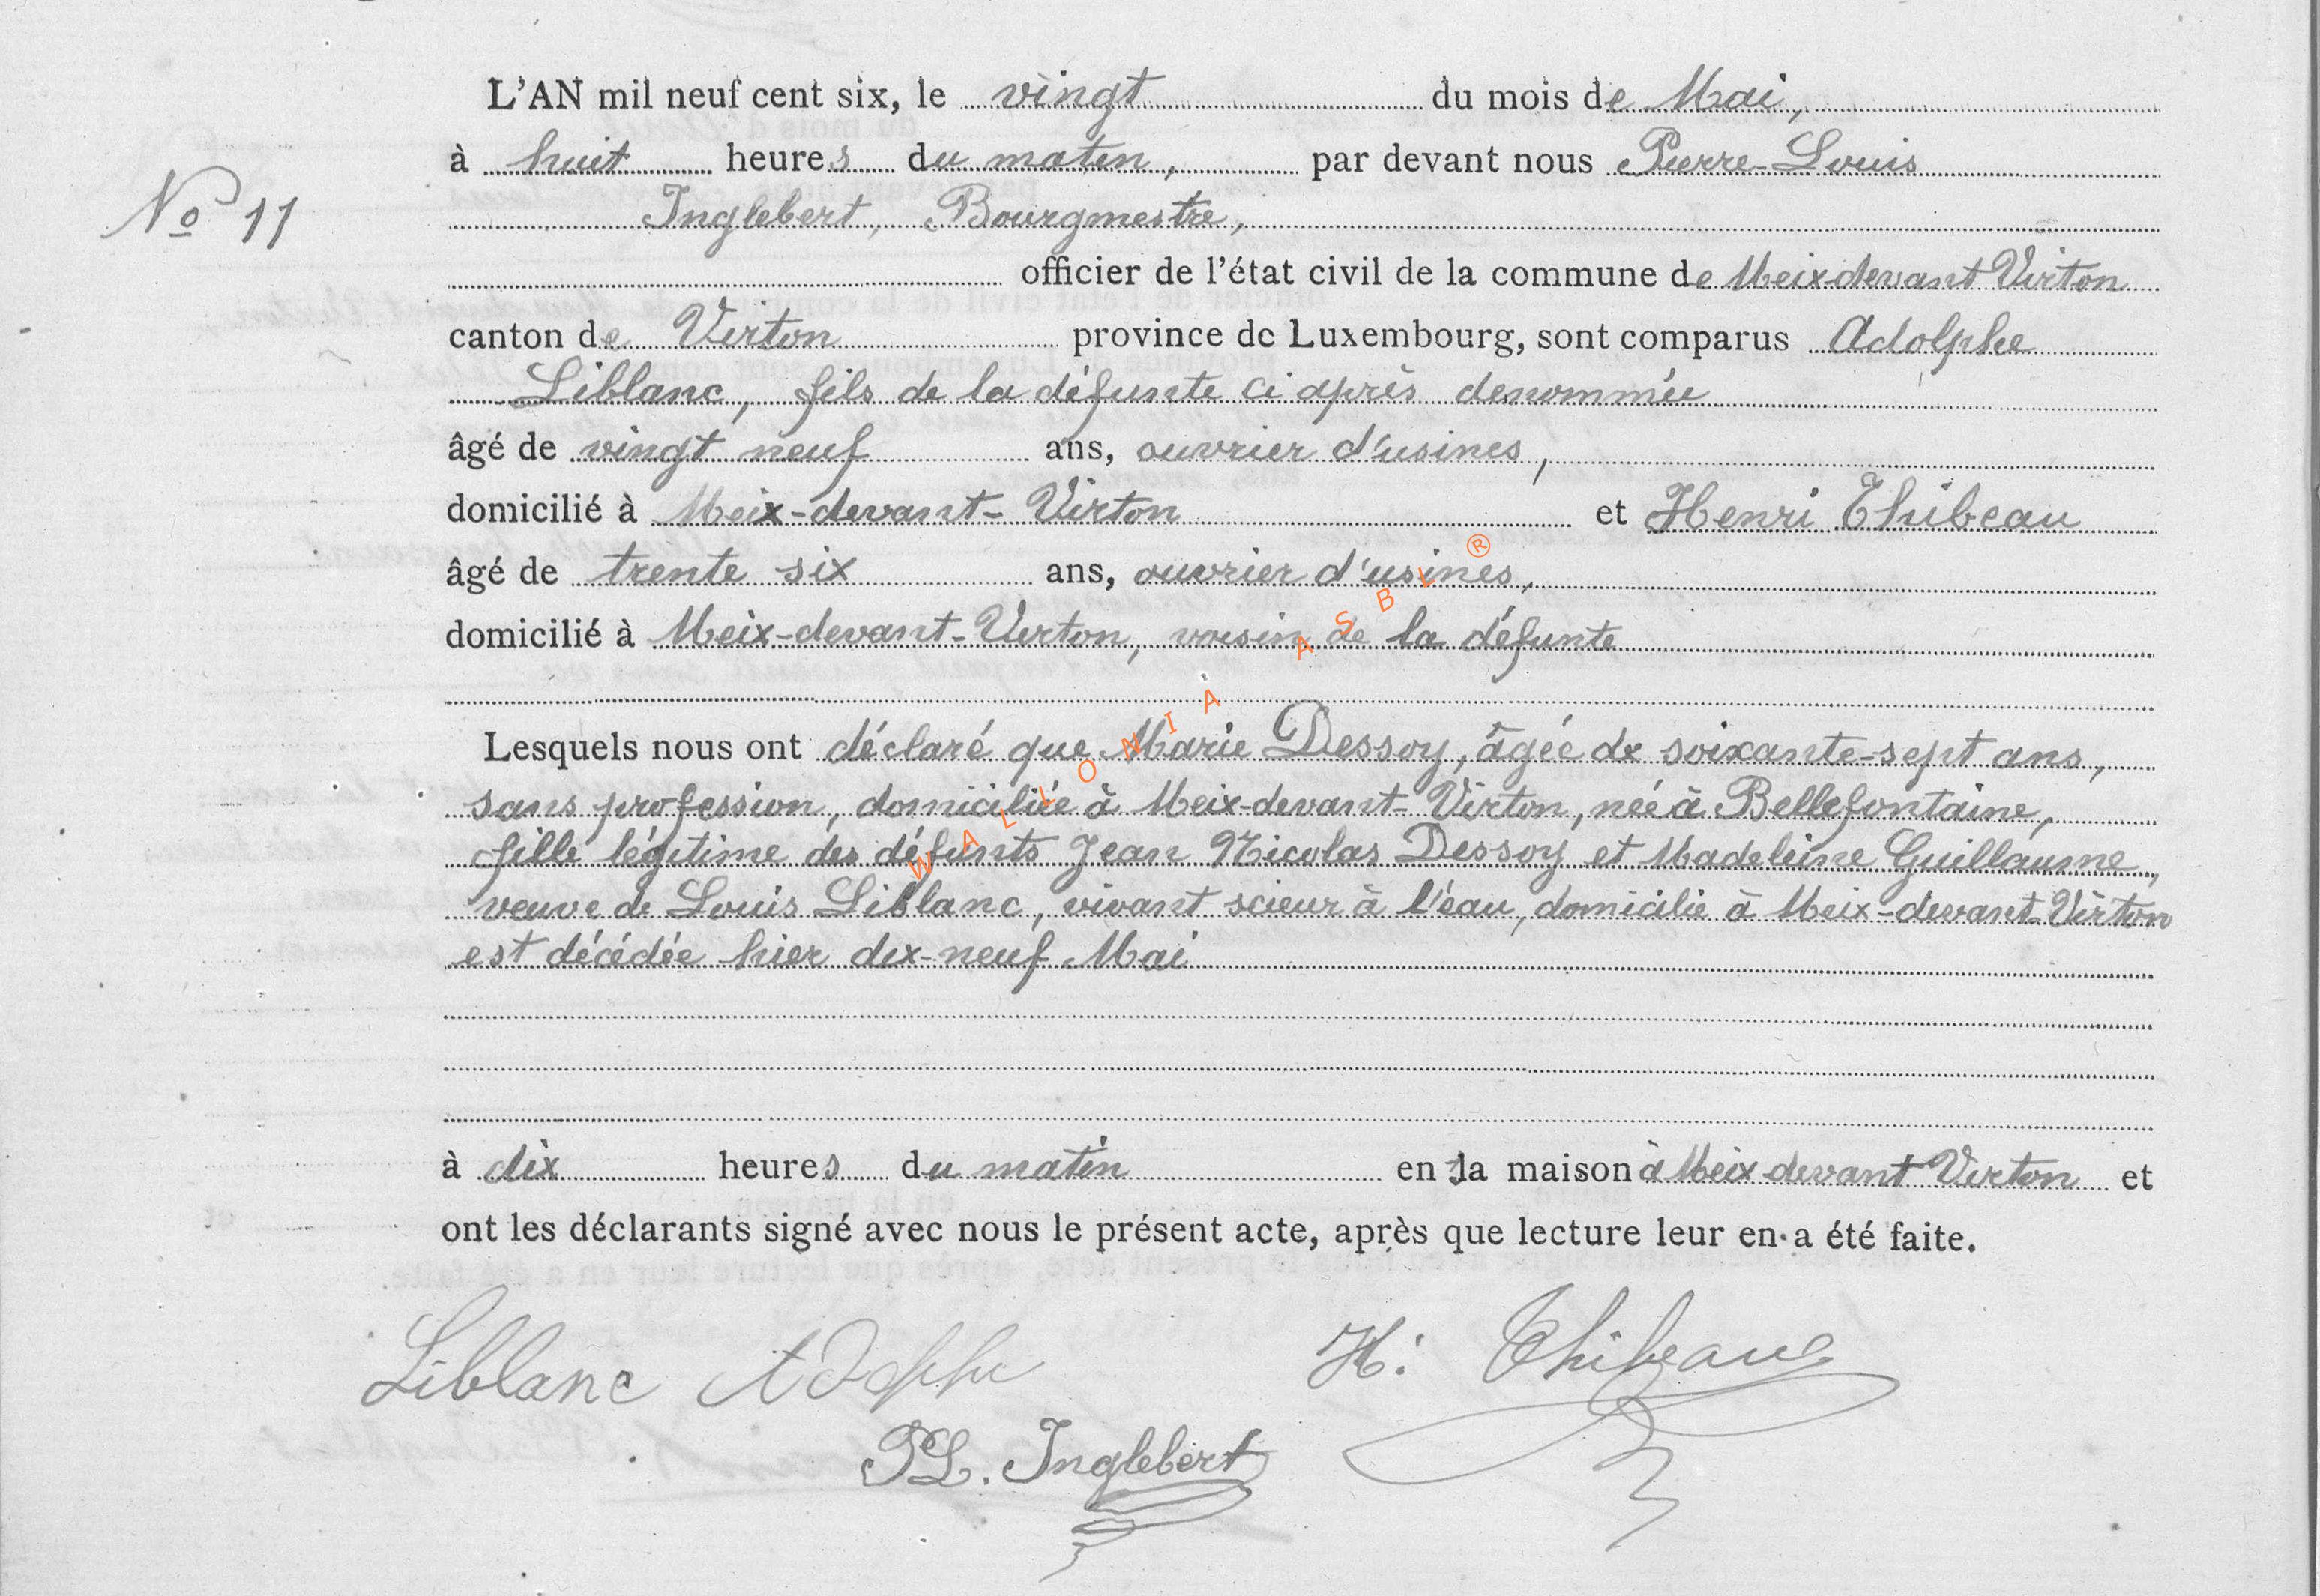 L'AN mil neuf cent six, le vingt du mois de Mai,
à huit heures du matin, par devant nous Pierre-Louis
No 11
Inglebert, Bourgmestre,
officier de l'état civil de la commune de Meix devant Virton
canton de Virton province de Luxembourg, sont comparus Adolphe
Liblanc, fils de la défunte ci après denommée
âgé de vingt neuf ans, ouvrier d'usines,
domicilié à Meix-devant-Virton et Henri Thibeau
âgé de trente six ans, ouvrier d'usines,
domicilié à Meix-devant-Virton, voisin de la défunte
Lesquels nous ont déclaré que Marie Dessoy, âgée de soixante-sept ans,
sans profession, domiciliée à Meix-devant-Virton, née à Bellefontaine,
fille légitime des défunts Jean Nicolas Dessoy et Madeleine Guillaume,
veuve de Louis Liblanc, vivant scieur à l'eau, domicilié à Meix-devant-Virton
est décédée hier dix-neuf Mai
à dix heures du matin en sa maison à Meix devant Virton et
ont les déclarants signé avec nous le présent acte, après que lecture leur en a été faite.
Liblanc Adolphe H. Thibeau
PL. Inglebert
WALLONIA ASBL ®